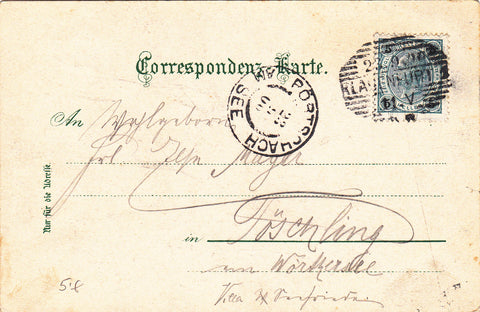 Correspondenz-Karte.
KLAGENFURT
PÖRTSCHACH AM SEE
An Wohlgeboren
Frl. Ilse Mayer
Nur für die Adresse
in Töschling
am Wörthersee
Villa Seefrieden